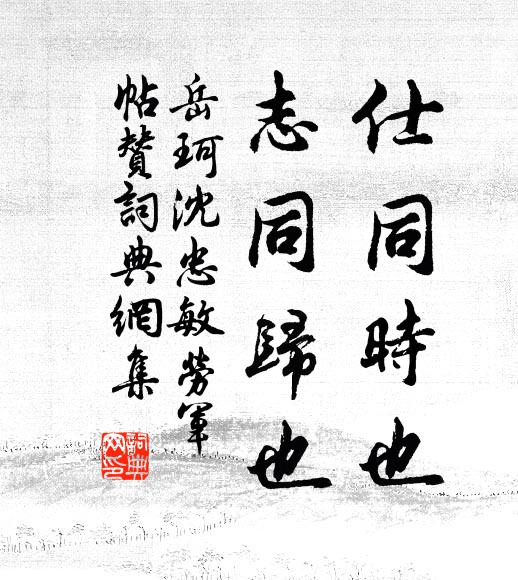 仕同時也
志同歸也
岳珂沈忠敏勞軍
帖贊詞典網集
詞典
网印